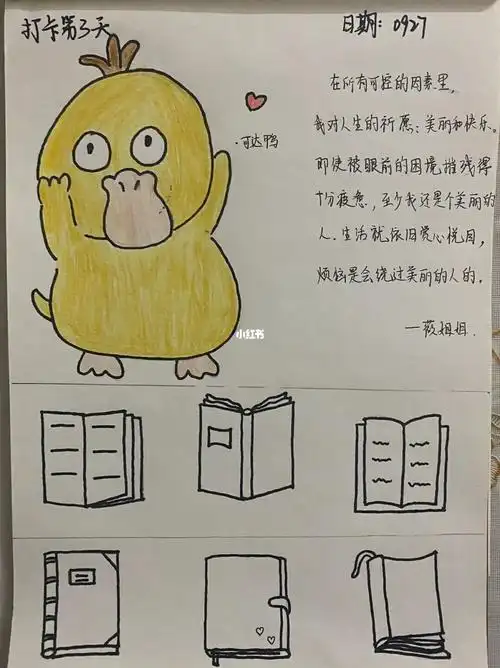 打卡第3天
日期：0927
在所有可控的因素里，
我对人生的祈愿：美丽和快乐.
即使被眼前的困境摧残得
十分疲惫，至少我还是个美丽的
人.生活就依旧赏心悦目，
烦恼是会绕过美丽的人的.
一薇姐姐.
·可达鸭
小红书